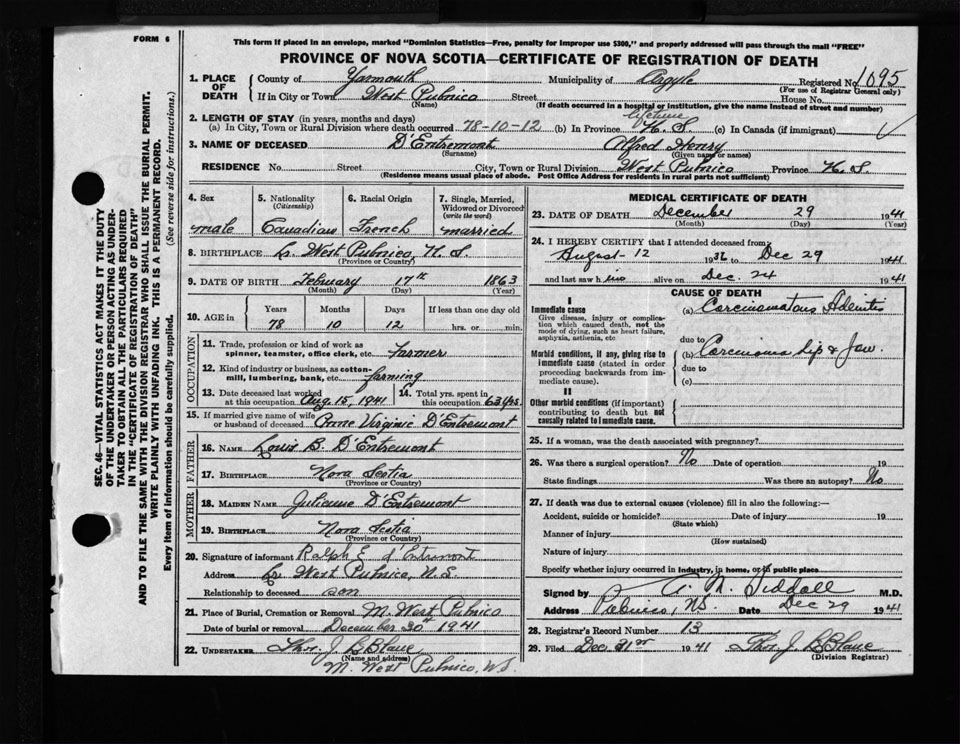 FORM 6
This form if placed in an envelope, marked "Dominion Statistics—Free, penalty for improper use $300," and properly addressed will pass through the mail "FREE"
PROVINCE OF NOVA SCOTIA—CERTIFICATE OF REGISTRATION OF DEATH
SEC. 46—VITAL STATISTICS ACT MAKES IT THE DUTY
OF THE UNDERTAKER OR PERSON ACTING AS UNDER-
TAKER TO OBTAIN ALL THE PARTICULARS REQUIRED
IN THE "CERTIFICATE OF REGISTRATION OF DEATH"
AND TO FILE THE SAME WITH THE DIVISION REGISTRAR WHO SHALL ISSUE THE BURIAL PERMIT.
WRITE PLAINLY WITH UNFADING INK. THIS IS A PERMANENT RECORD.
Every item of information should be carefully supplied. (See reverse side for instructions.)
1. PLACE OF DEATH County of Yarmouth Municipality of Argyle Registered No 1095
(For use of Registrar General only)
If in City or Town West Pubnico Street House No.
(Name) (If death occurred in a hospital or institution, give the name instead of street and number)
2. LENGTH OF STAY (in years, months and days)
(a) In City, Town or Rural Division where death occurred 78-10-12 (b) In Province lifetime N.S. (c) In Canada (if immigrant)
3. NAME OF DECEASED D'Entremont Alfred Henry
(Surname) (Given name or names)
RESIDENCE No. Street City, Town or Rural Division West Pubnico Province N.S.
(Residence means usual place of abode. Post Office Address for residents in rural parts not sufficient)
4. Sex male
5. Nationality (Citizenship) Canadian
6. Racial Origin French
7. Single, Married, Widowed or Divorced (write the word) married
8. BIRTHPLACE Lr. West Pubnico, N.S.
(Province or Country)
9. DATE OF BIRTH February 17th 1863
(Month) (Day) (Year)
10. AGE in Years 78 Months 10 Days 12 If less than one day old hrs. or min.
OCCUPATION
11. Trade, profession or kind of work as spinner, teamster, office clerk, etc. Farmer
12. Kind of industry or business, as cotton-mill, lumbering, bank, etc. farming
13. Date deceased last worked at this occupation Aug. 15, 1941
14. Total yrs. spent in this occupation 63 yrs.
15. If married give name of wife or husband of deceased Anne Virginie D'Entremont
FATHER
16. NAME Louis B. D'Entremont
17. BIRTHPLACE Nova Scotia
(Province or Country)
MOTHER
18. MAIDEN NAME Julienne D'Entremont
19. BIRTHPLACE Nova Scotia
(Province or Country)
20. Signature of informant Ralph E d'Entremont
Address Lr. West Pubnico, N.S.
Relationship to deceased son
21. Place of Burial, Cremation or Removal M. West Pubnico
Date of burial or removal December 30th 1941
22. UNDERTAKER Thos. J LeBlanc
(Name and address)
M. West Pubnico, N.S.
MEDICAL CERTIFICATE OF DEATH
23. DATE OF DEATH December 29 1941
(Month) (Day) (Year)
24. I HEREBY CERTIFY that I attended deceased from
August 12 1936 to Dec 29 1941
and last saw him alive on Dec. 24 1941
CAUSE OF DEATH
I
Immediate cause
Give disease, injury or complication which caused death, not the mode of dying, such as heart failure, asphyxia, asthenia, etc
(a) Carcinomatous Adenitis
due to
Morbid conditions, if any, giving rise to immediate cause (stated in order proceeding backwards from immediate cause).
(b) Carcinoma lip & jaw.
due to
(c)
II
Other morbid conditions (if important) contributing to death but not causally related to immediate cause.
25. If a woman, was the death associated with pregnancy?
26. Was there a surgical operation? No Date of operation 19
State findings Was there an autopsy? No
27. If death was due to external causes (violence) fill in also the following:—
Accident, suicide or homicide? Date of injury 19
(State which)
Manner of injury
(How sustained)
Nature of injury
Specify whether injury occurred in industry, in home, or in public place
Signed by A. M. Siddall M.D.
Address Pubnico, NS. Date Dec 29 1941
28. Registrar's Record Number 13
29. Filed Dec 31st 1941 Thos. J LeBlanc
(Division Registrar)